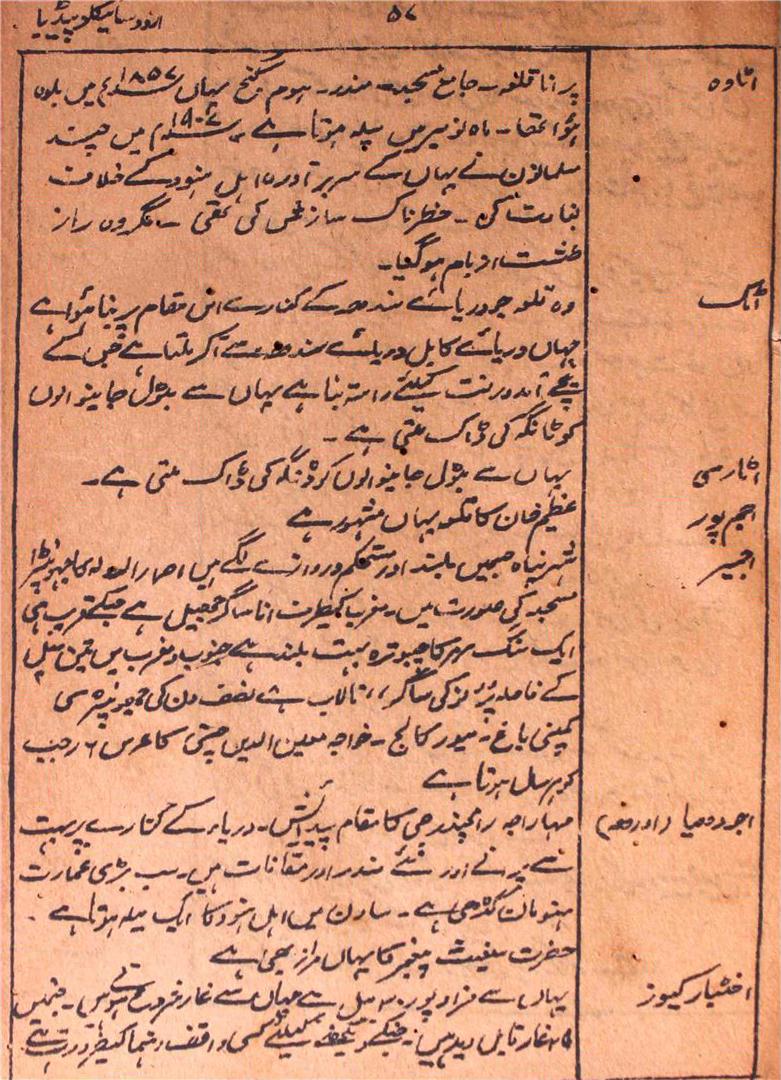 اردو سائیکلو پیڈیا
۵۷
اٹاوہ
پرانا قلعہ - جامع مسجد - مندر - ہیوم گنج یہاں ۱۸۵۷ء میں بلوہ
ہوا تھا - ماہ نومبر میں میلہ ہوتا ہے - ۱۹۰۷ء میں چند
مسلمانوں نے یہاں کے سربرآوردہ اہل ہنود کے خلاف
بغاوت کی - خطرناک سازش کی تھی - مگر وہ راز
طشت از بام ہوگیا -
اٹک
وہ قلعہ جو دریائے سندھ کے کنارے اس مقام پر بنا ہوا ہے
جہاں دریائے کابل دریائے سندھ سے آکر ملتا ہے جس کے
نیچے آمدورفت کیلئے راستہ بنا ہے یہاں سے جانیوالوں
کو ٹانگہ کی ڈاک ملتی ہے -
اٹارسی
یہاں سے جانیوالوں کو ٹانگہ کی ڈاک ملتی ہے -
عظیم خان کا قلعہ یہاں مشہور ہے
اجمیر
شہر پناہ جسمیں بلند اور مستحکم دروازے لگے ہیں
مسجد کی صورت میں - مغرب کیطرف اناساگر جھیل ہے جسکے قریب ہی
ایک سنگ مرمر کا چبوترہ بہت بلند ہے جنوب و مغرب میں تین میل
کے فاصلہ پر تالاب ہے نصف دن کی جھونپڑی
کمپنی باغ - میور کالج - خواجہ معین الدین چشتی کا عرس ۶ رجب
کو ہر سال ہوتا ہے
اجودھیا (اودھ)
مہاراجہ رامچندر جی کا مقام پیدائش - دریا کے کنارے پر بہت
سے پرانے اور نئے مندر اور مقامات ہیں - سب بڑی عمارت
ہنومان گڈھی ہے - ساون میں اہل ہنود کا ایک میلہ ہوتا ہے -
حضرت شیث پیغمبر کا یہاں مزار بھی ہے
اختیار کیوز
یہاں سے پور ۲۰ میل ہے جہاں سے غار شروع ہوتے ہیں - جنمیں
۲۵ غار قابل دید ہیں - جنکے کیلئے کسی واقف رہنما کیضرورت ہے